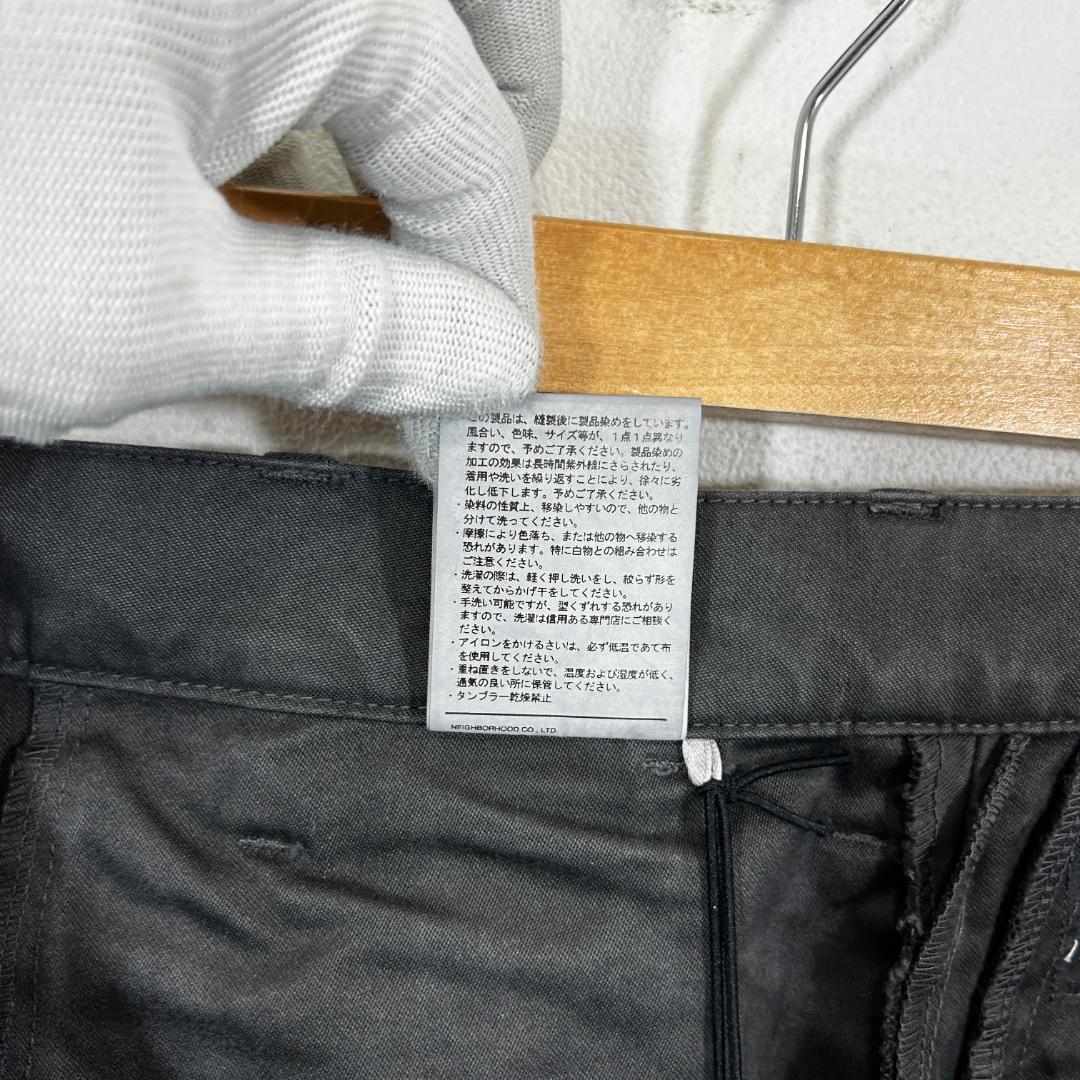 この製品は、縫製後に製品染めをしています。
風合い、色味、サイズ等が、1点1点異なり
ますので、予めご了承ください。製品染めの
加工の効果は長時間紫外線にさらされたり、
着用や洗いを繰り返すことにより、徐々に劣
化し低下します。予めご了承ください。
・染料の性質上、移染しやすいので、他の物と
分けて洗ってください。
・摩擦により色落ち、または他の物へ移染する
恐れがあります。特に白物との組み合わせは
ご注意ください。
・洗濯の際は、軽く押し洗いをし、絞らず形を
整えてからかげ干をしてください。
・手洗い可能ですが、型くずれする恐れがあり
ますので、洗濯は信用ある専門店にご相談く
ださい。
・アイロンをかけるさいは、必ず低温であて布
を使用してください。
・重ね置きをしないで、温度および湿度が低く、
通気の良い所に保管してください。
・タンブラー乾燥禁止
NEIGHBORHOOD CO., LTD.